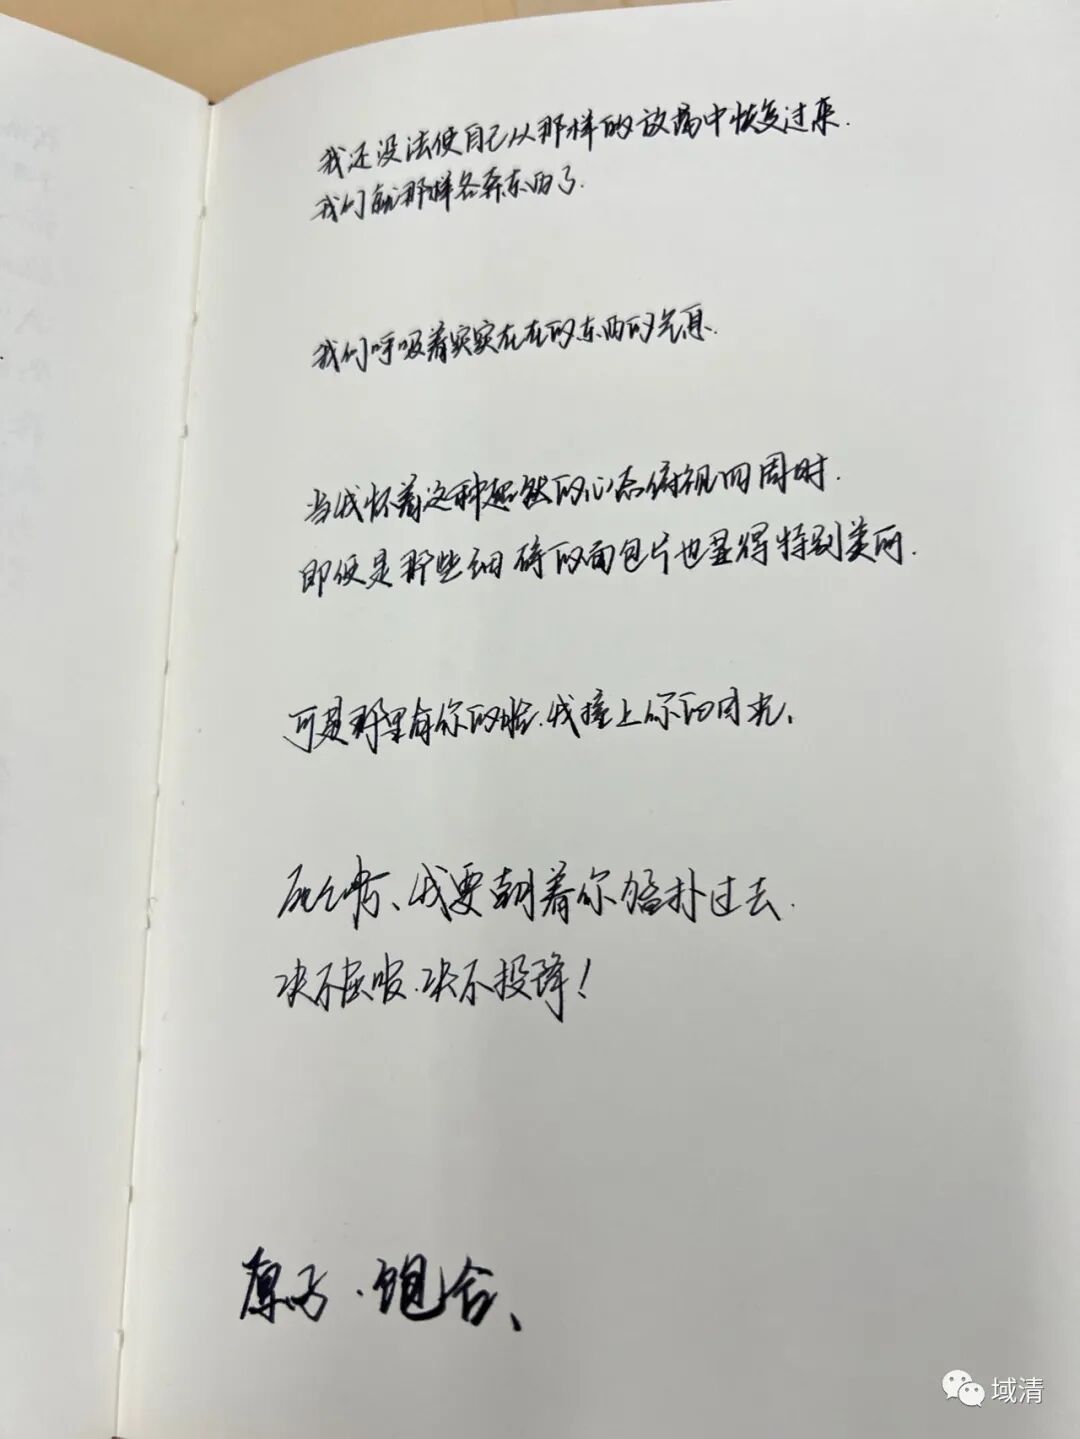 我还没法使自己从那样的放荡中恢复过来.
我们就那样各奔东西了.
我们呼吸着实实在在的东西的气息.
当我怀着这种超然的心态俯视四周时.
即便是那些细碎的面包片也显得特别美丽.
可是那里有你的脸.我撞上你的目光、
死亡啊、我要朝着你猛扑过去.
决不屈服.决不投降!
原子·饱合、
域清